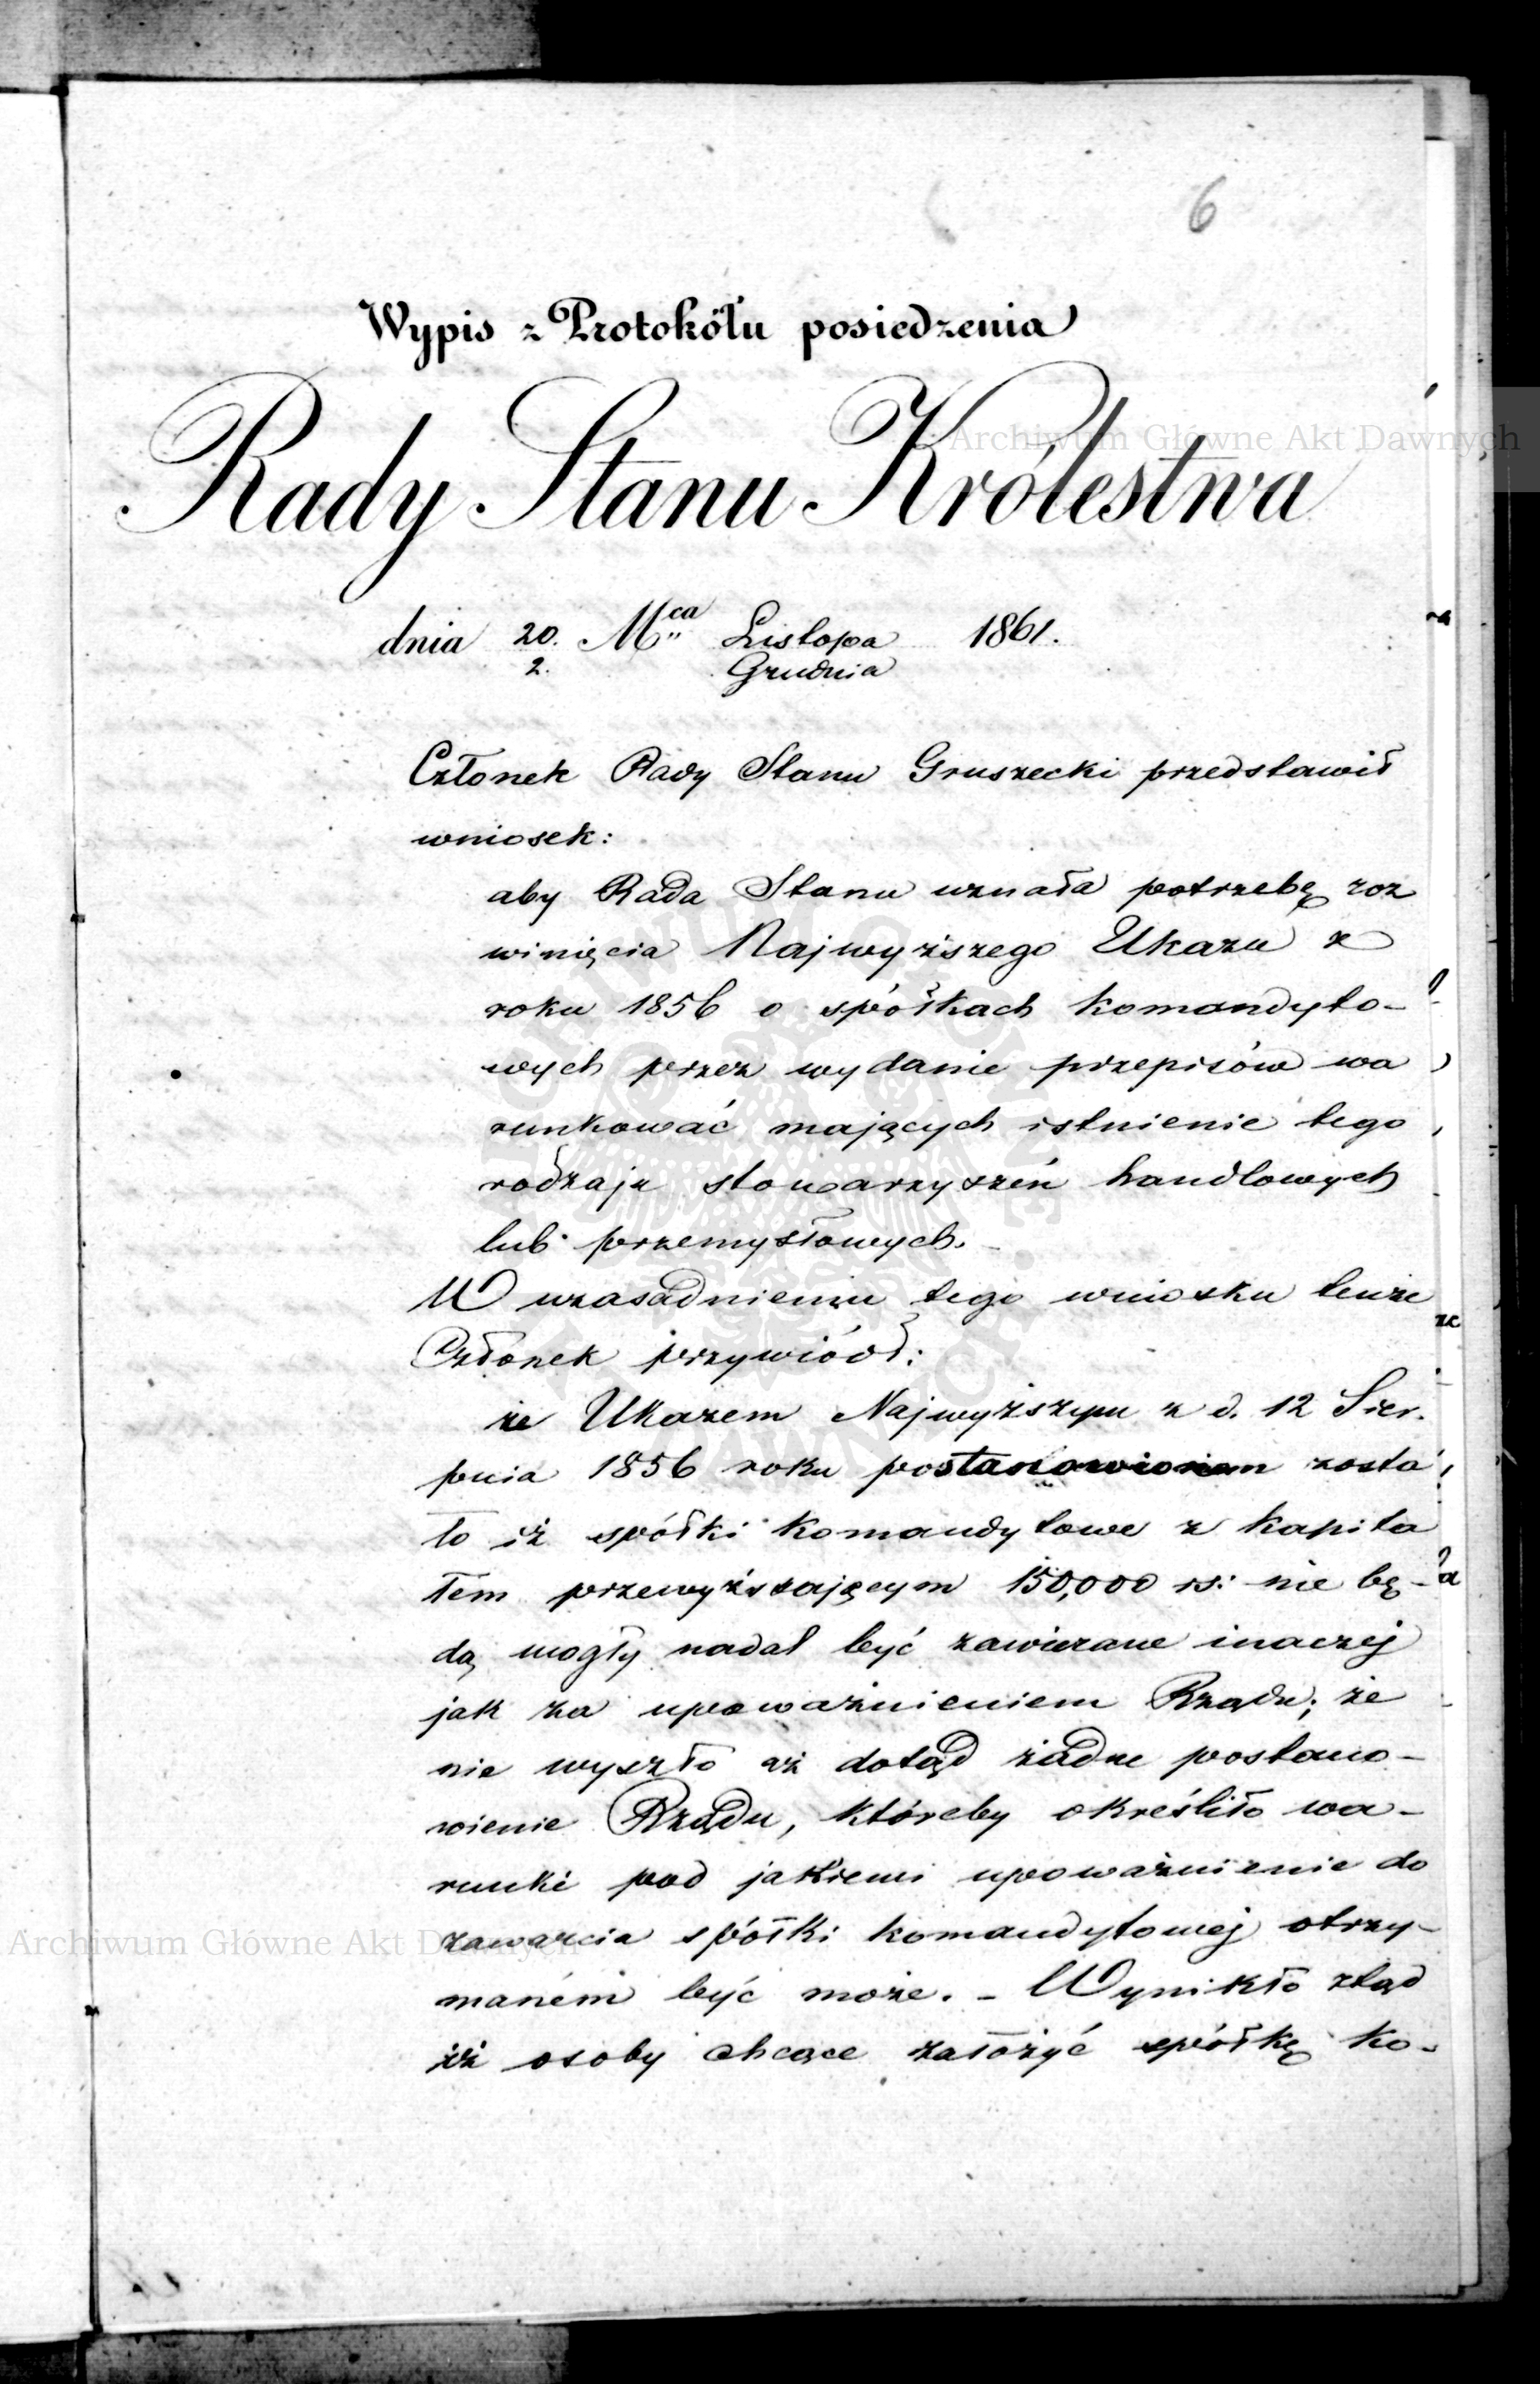 6
Wypis z Protokółu posiedzenia
Rady Stanu Królestwa
dnia 20. Mca Listopa 1861.
2. Grudnia
Członek Rady Stanu Gruszecki przedstawił
wniosek:
aby Rada Stanu uznała potrzebę roz
winięcia Najwyższego Ukazu z
roku 1856 o spółkach komandyto-
wych przez wydanie przepisów wa
runkować mających istnienie tego
rodzaju stowarzyszeń handlowych
lub przemysłowych.
W uzasadnieniu tego wniosku tenże
Członek przywiódł:
że Ukazem Najwyższym z d. 12 Sier.
pnia 1856 roku postanowionem zosta
ło iż spółki komandytowe z kapita
łem przewyższającym 150,000 rs: nie bę-
dą mogły nadal być zawierane inaczej
jak za upoważnieniem Rządu; że
nie wyszło aż dotąd żadne postano-
wienie Rządu, któreby określiło wa-
runki pod jakiemi upoważnienie do
zawarcia spółki komandytowej otrzy-
maném być może. - Wynikło ztąd
iż osoby chcące założyć spółkę ko-
Archiwum Główne Akt Dawnych